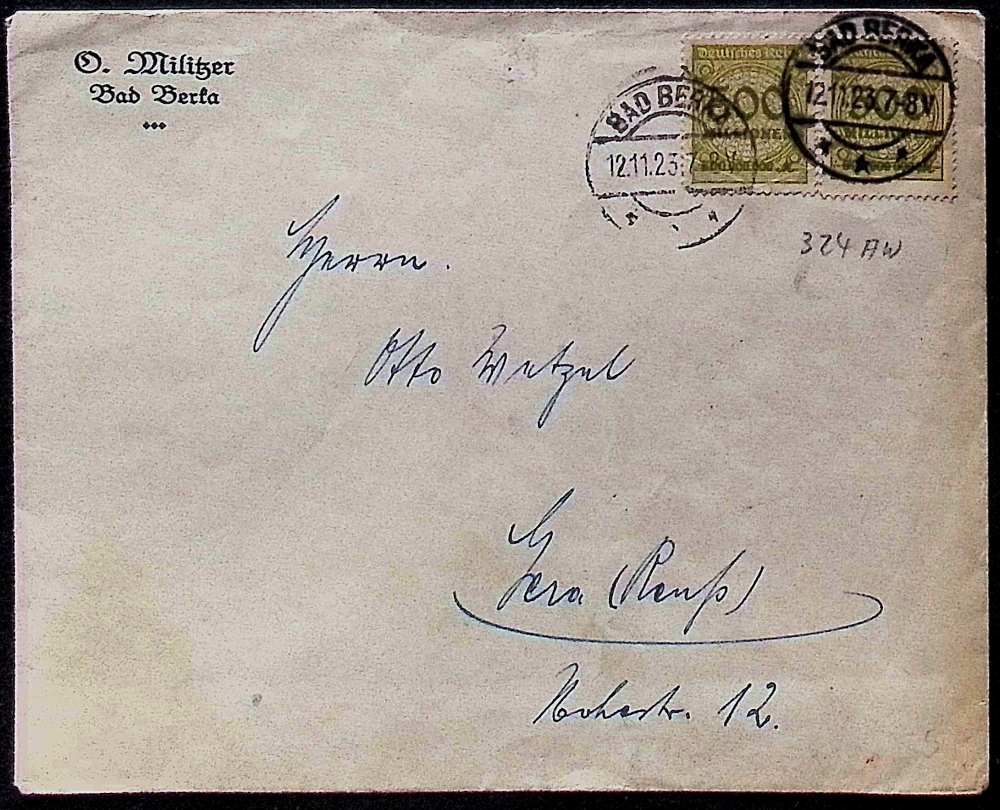 O. Militzer
Bad Berka
Deutsches Reich
500
500
MILLIONEN
MILLIONEN
BAD BERKA
12.11.23.7-8V
BAD BERKA
12.11.23.7-8V
324 AW
Herrn.
Otto Wetzel
Gera (Reuß)
12.